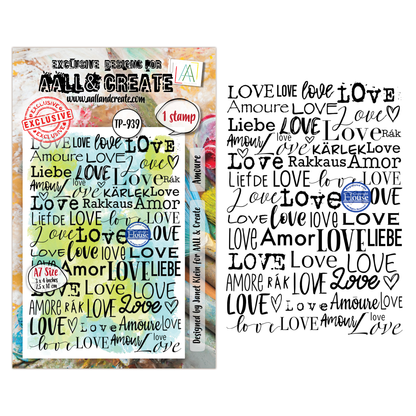 EXCLUSIVE DESIGNS FOR
AALL & CREATE
www.aallandcreate.com
EXCLUSIVE
TP-939
1 stamp
Amoure
Designed by Janet Klein for AALL & Create
A7 Size
3 x 4 inches
7.5 x 10 cm
LOVE LOVE love LOVE
Amoure LOVE Love
Liebe LOVE Rák
Amour Love KÄRLEK Love
Love Rakkaus Amor
LIEFDE LOVE LOVE
Love Love LOVE
Love love love LOVE
LOVE Amor LOVE LIEBE
LOVE LOVE LOVE Love
AMORE RÁK LOVE Love
LOVE Love Amoure LOVE
love LOVE Amour Love
LOVE LOVE love LOVE
Amoure LOVE Love
Liebe LOVE Rák
Amour Love KÄRLEK Love
Love Rakkaus Amor
LIEFDE LOVE LOVE
House
Love Love LOVE
Love love love LOVE
LOVE Amor LOVE LIEBE
LOVE LOVE LOVE Love
AMORE RÁK LOVE Love
LOVE Love Amoure LOVE
love LOVE Amour Love